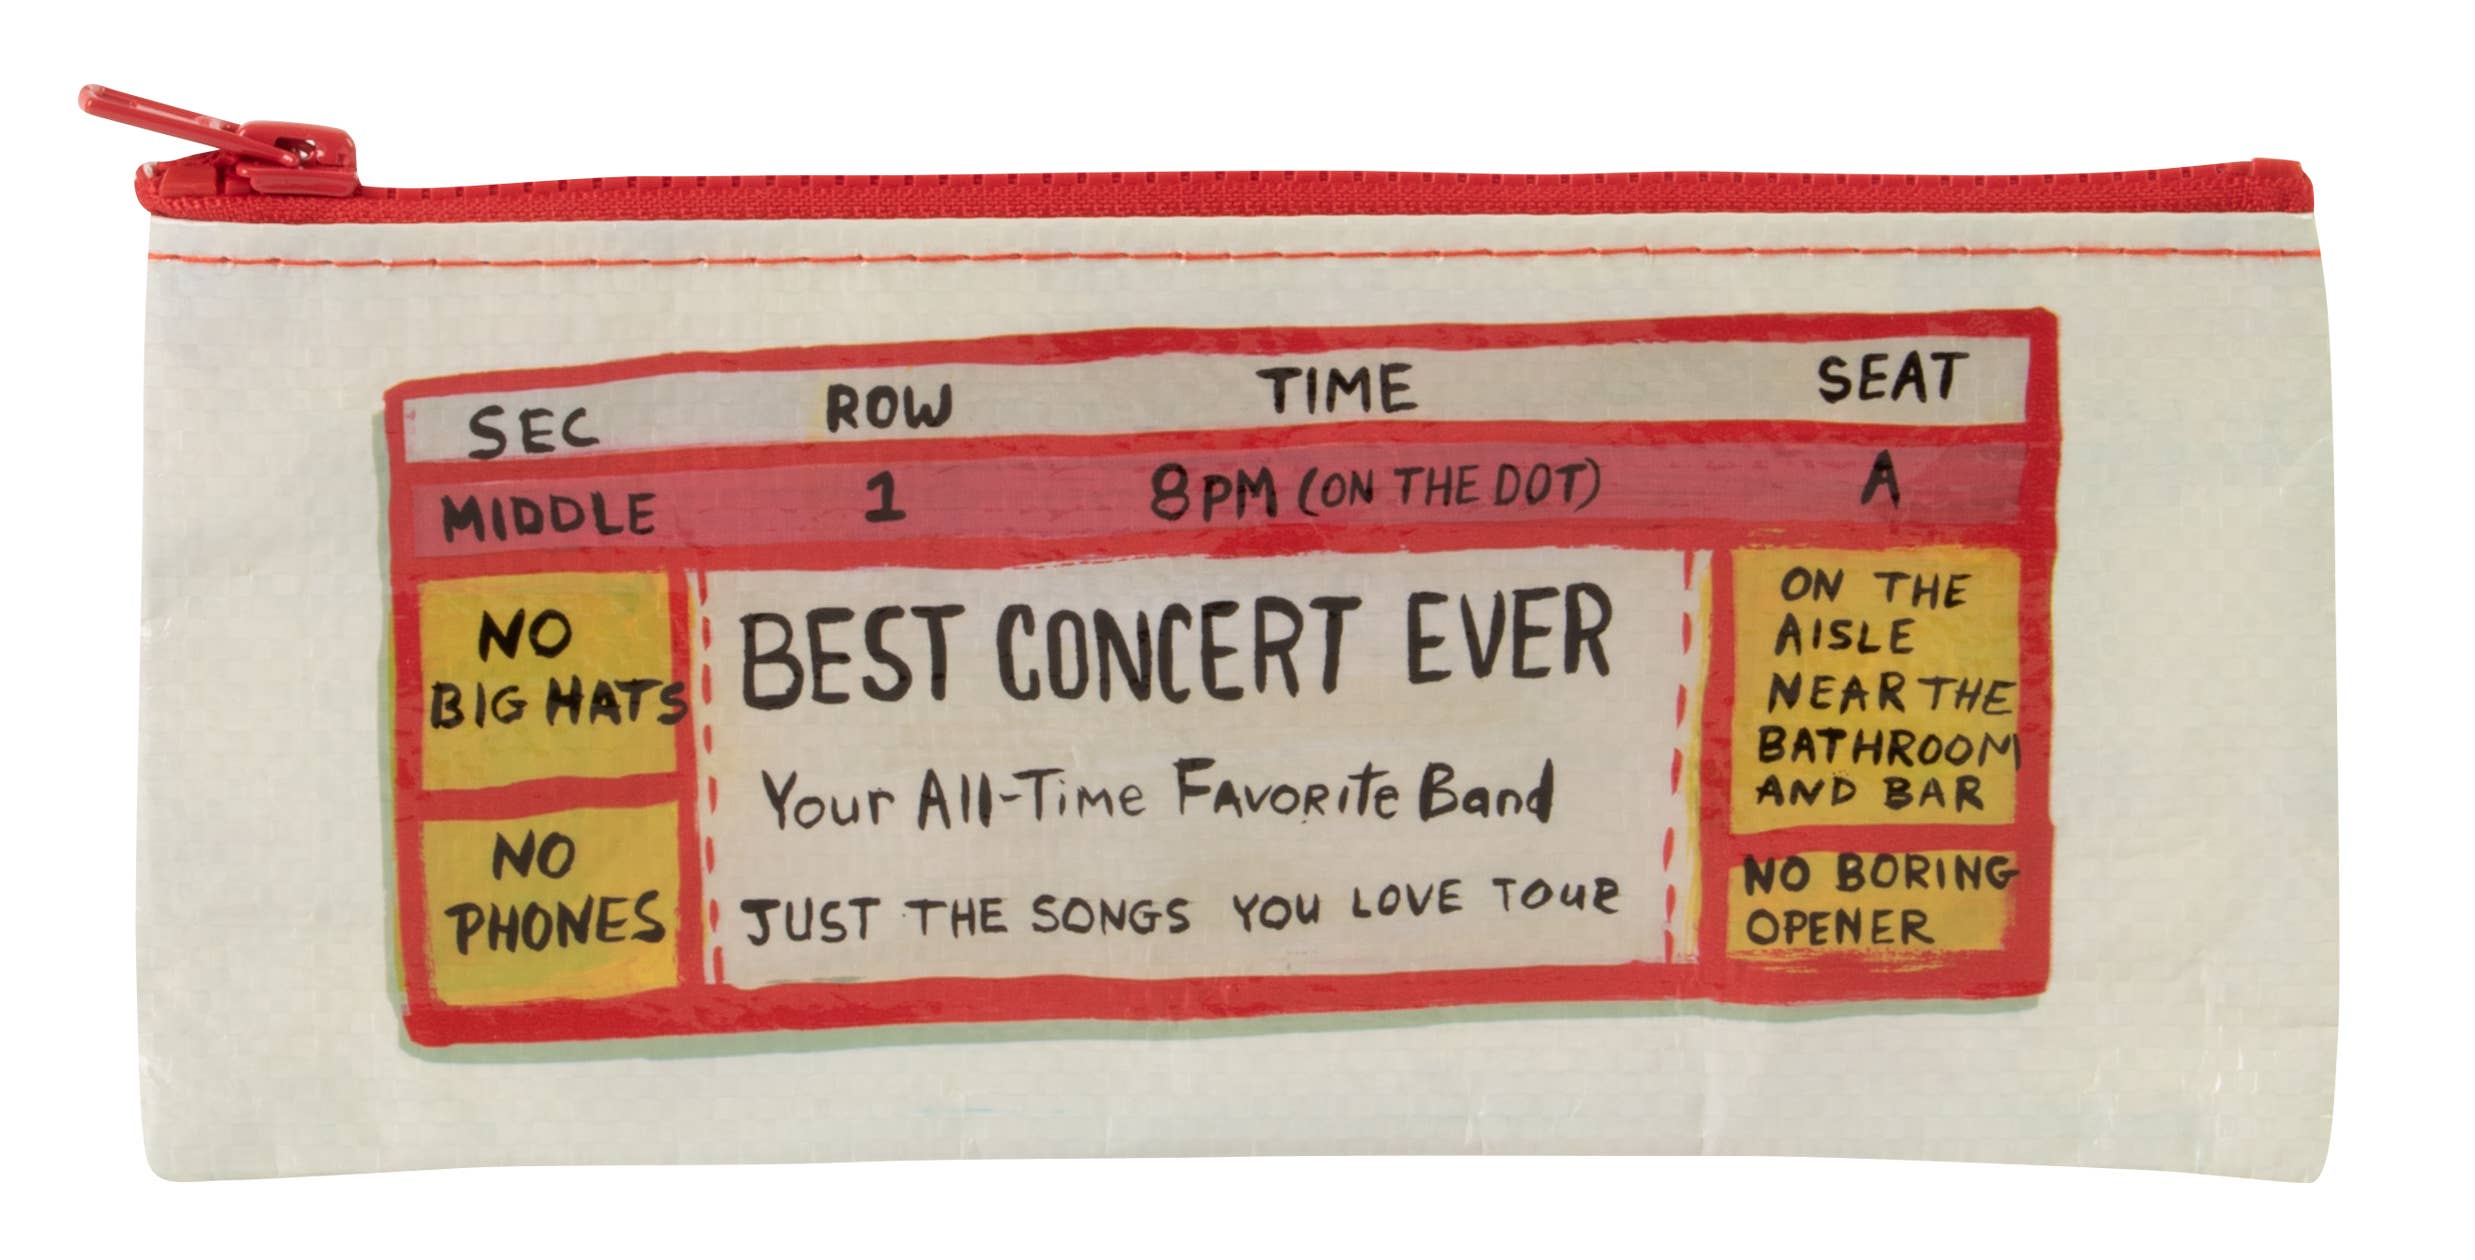 SEC ROW TIME SEAT
MIDDLE 1 8PM (ON THE DOT) A
NO
BIG HATS
NO
PHONES
BEST CONCERT EVER
Your All-Time Favorite Band
JUST THE SONGS YOU LOVE TOUR
ON THE
AISLE
NEAR THE
BATHROOM
AND BAR
NO BORING
OPENER